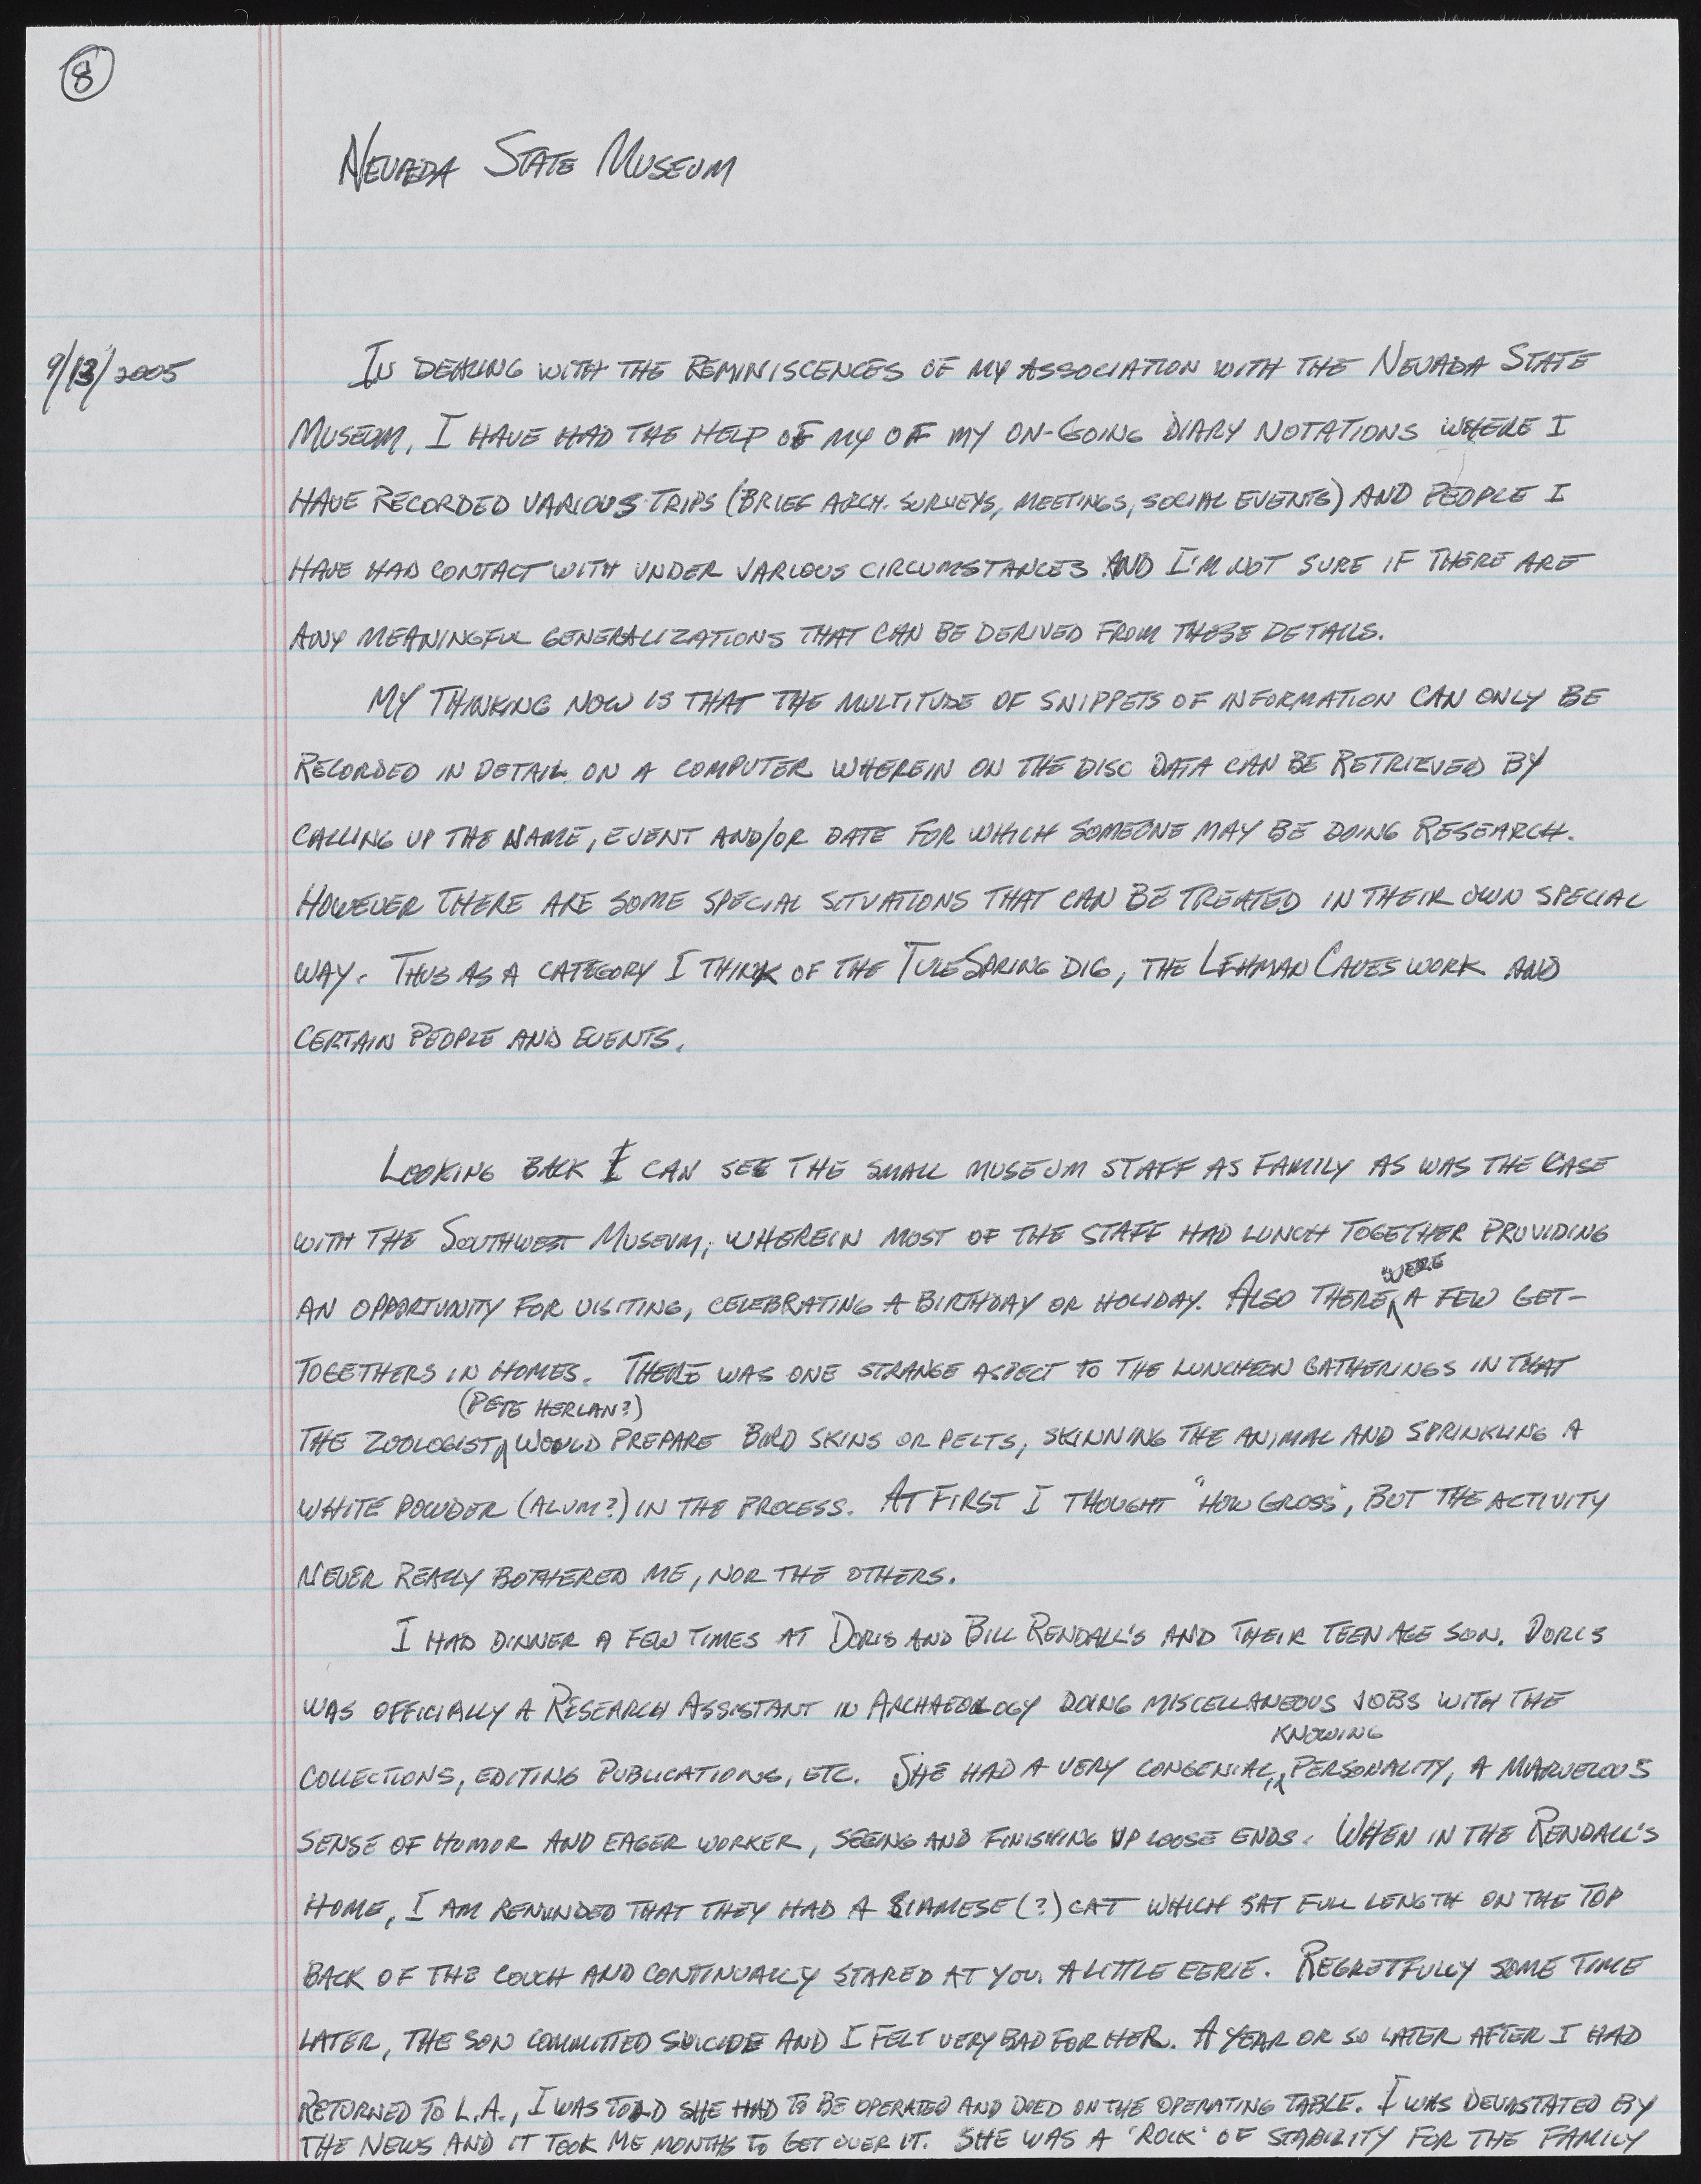 8
NEVADA STATE MUSEUM
9/13/2005
IN DEALING WITH THE REMINISCENCES OF MY ASSOCIATION WITH THE NEVADA STATE
MUSEUM, I HAVE HAD THE HELP OF MY OF MY ON-GOING DIARY NOTATIONS WHERE I
HAVE RECORDED VARIOUS TRIPS (BRIEF ARCH. SURVEYS, MEETINGS, SOCIAL EVENTS) AND PEOPLE I
HAVE HAD CONTACT WITH UNDER VARIOUS CIRCUMSTANCES AND I'M NOT SURE IF THERE ARE
ANY MEANINGFUL GENERALIZATIONS THAT CAN BE DERIVED FROM THESE DETAILS.
MY THINKING NOW IS THAT THE MULTITUDE OF SNIPPETS OF INFORMATION CAN ONLY BE
RECORDED IN DETAIL ON A COMPUTER WHEREIN ON THE DISC DATA CAN BE RETRIEVED BY
CALLING UP THE NAME, EVENT AND/OR DATE FOR WHICH SOMEONE MAY BE DOING RESEARCH.
HOWEVER THERE ARE SOME SPECIAL SITUATIONS THAT CAN BE TREATED IN THEIR OWN SPECIAL
WAY. THUS AS A CATEGORY I THINK OF THE TULE SPRING DIG, THE LEHMAN CAVES WORK AND
CERTAIN PEOPLE AND EVENTS.
LOOKING BACK I CAN SEE THE SMALL MUSEUM STAFF AS FAMILY AS WAS THE CASE
WITH THE SOUTHWEST MUSEUM; WHEREIN MOST OF THE STAFF HAD LUNCH TOGETHER PROVIDING
WERE
AN OPPORTUNITY FOR VISITING, CELEBRATING A BIRTHDAY OR HOLIDAY. ALSO THERE A FEW GET-
TOGETHERS IN HOMES. THERE WAS ONE STRANGE ASPECT TO THE LUNCHEON GATHERINGS IN THAT
(PETE HERLAN?)
THE ZOOLOGIST, WOULD PREPARE BIRD SKINS OR PELTS, SKINNING THE ANIMAL AND SPRINKLING A
WHITE POWDER (ALUM?) IN THE PROCESS. AT FIRST I THOUGHT "HOW GROSS", BUT THE ACTIVITY
NEVER REALLY BOTHERED ME, NOR THE OTHERS.
I HAD DINNER A FEW TIMES AT DORIS AND BILL RENDALL'S AND THEIR TEEN AGE SON. DORIS
WAS OFFICIALLY A RESEARCH ASSISTANT IN ARCHAEOLOGY DOING MISCELLANEOUS JOBS WITH THE
KNOWING
COLLECTIONS, EDITING PUBLICATIONS, ETC. SHE HAD A VERY CONGENIAL, PERSONALITY, A MARVELOUS
SENSE OF HUMOR AND EAGER WORKER, SEEING AND FINISHING UP LOOSE ENDS. WHEN IN THE RENDALL'S
HOME, I AM REMINDED THAT THEY HAD A SIAMESE (?) CAT WHICH SAT FULL LENGTH ON THE TOP
BACK OF THE COUCH AND CONTINUALLY STARED AT YOU. A LITTLE EERIE. REGRETFULLY SOME TIME
LATER, THE SON COMMITTED SUICIDE AND I FELT VERY BAD FOR HER. A YEAR OR SO LATER AFTER I HAD
RETURNED TO L.A., I WAS TOLD SHE HAD TO BE OPERATED AND DIED ON THE OPERATING TABLE. I WAS DEVASTATED BY
THE NEWS AND IT TOOK ME MONTHS TO GET OVER IT. SHE WAS A 'ROCK' OF STABILITY FOR THE FAMILY